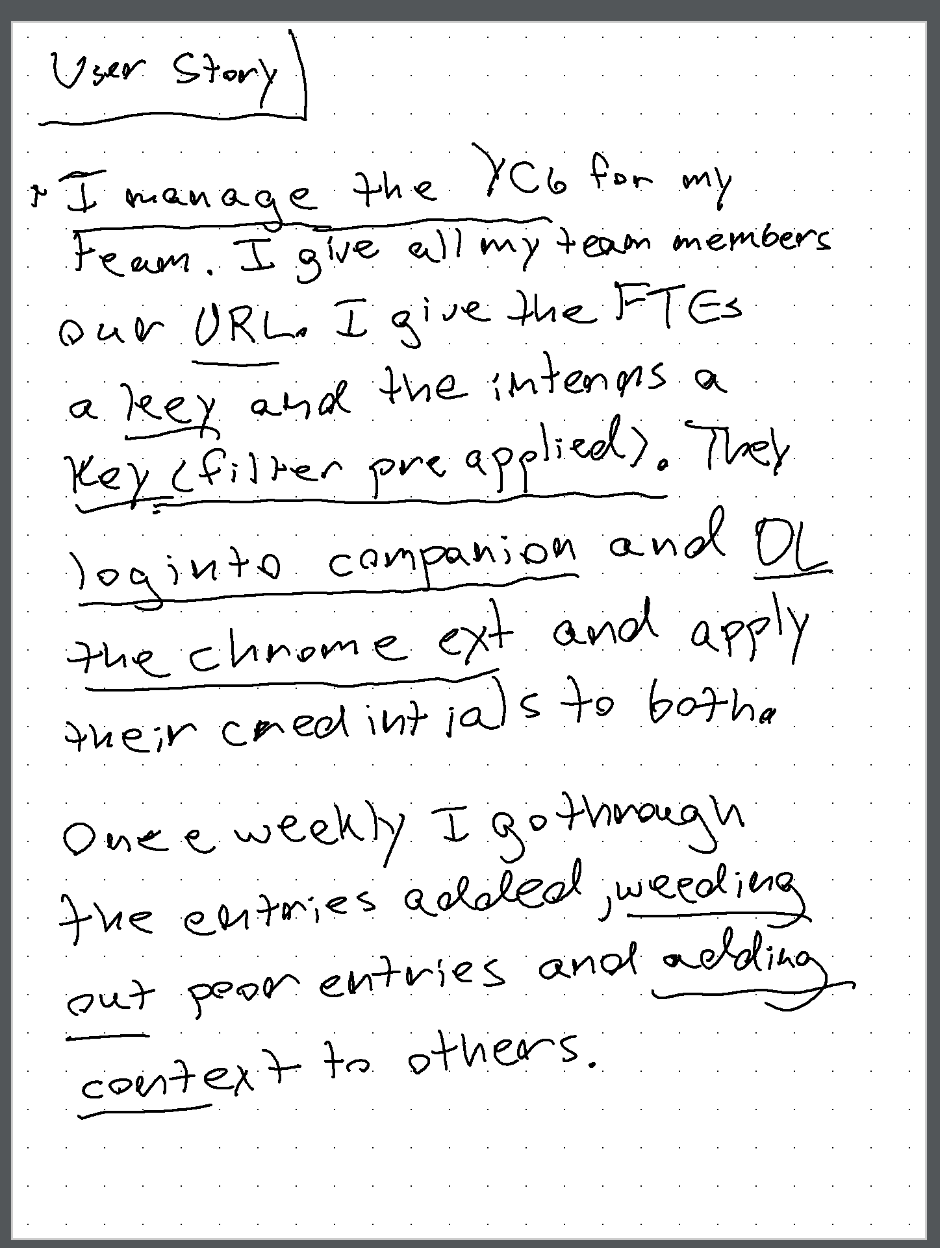 User Story
I manage the YC6 for my
team. I give all my team members
our URL. I give the FTEs
a key and the interns a
key (filter pre applied). They
log into companion and DL
the chrome ext and apply
their credintials to both.
Once weekly I go through
the entries added, weeding
out poor entries and adding
context to others.